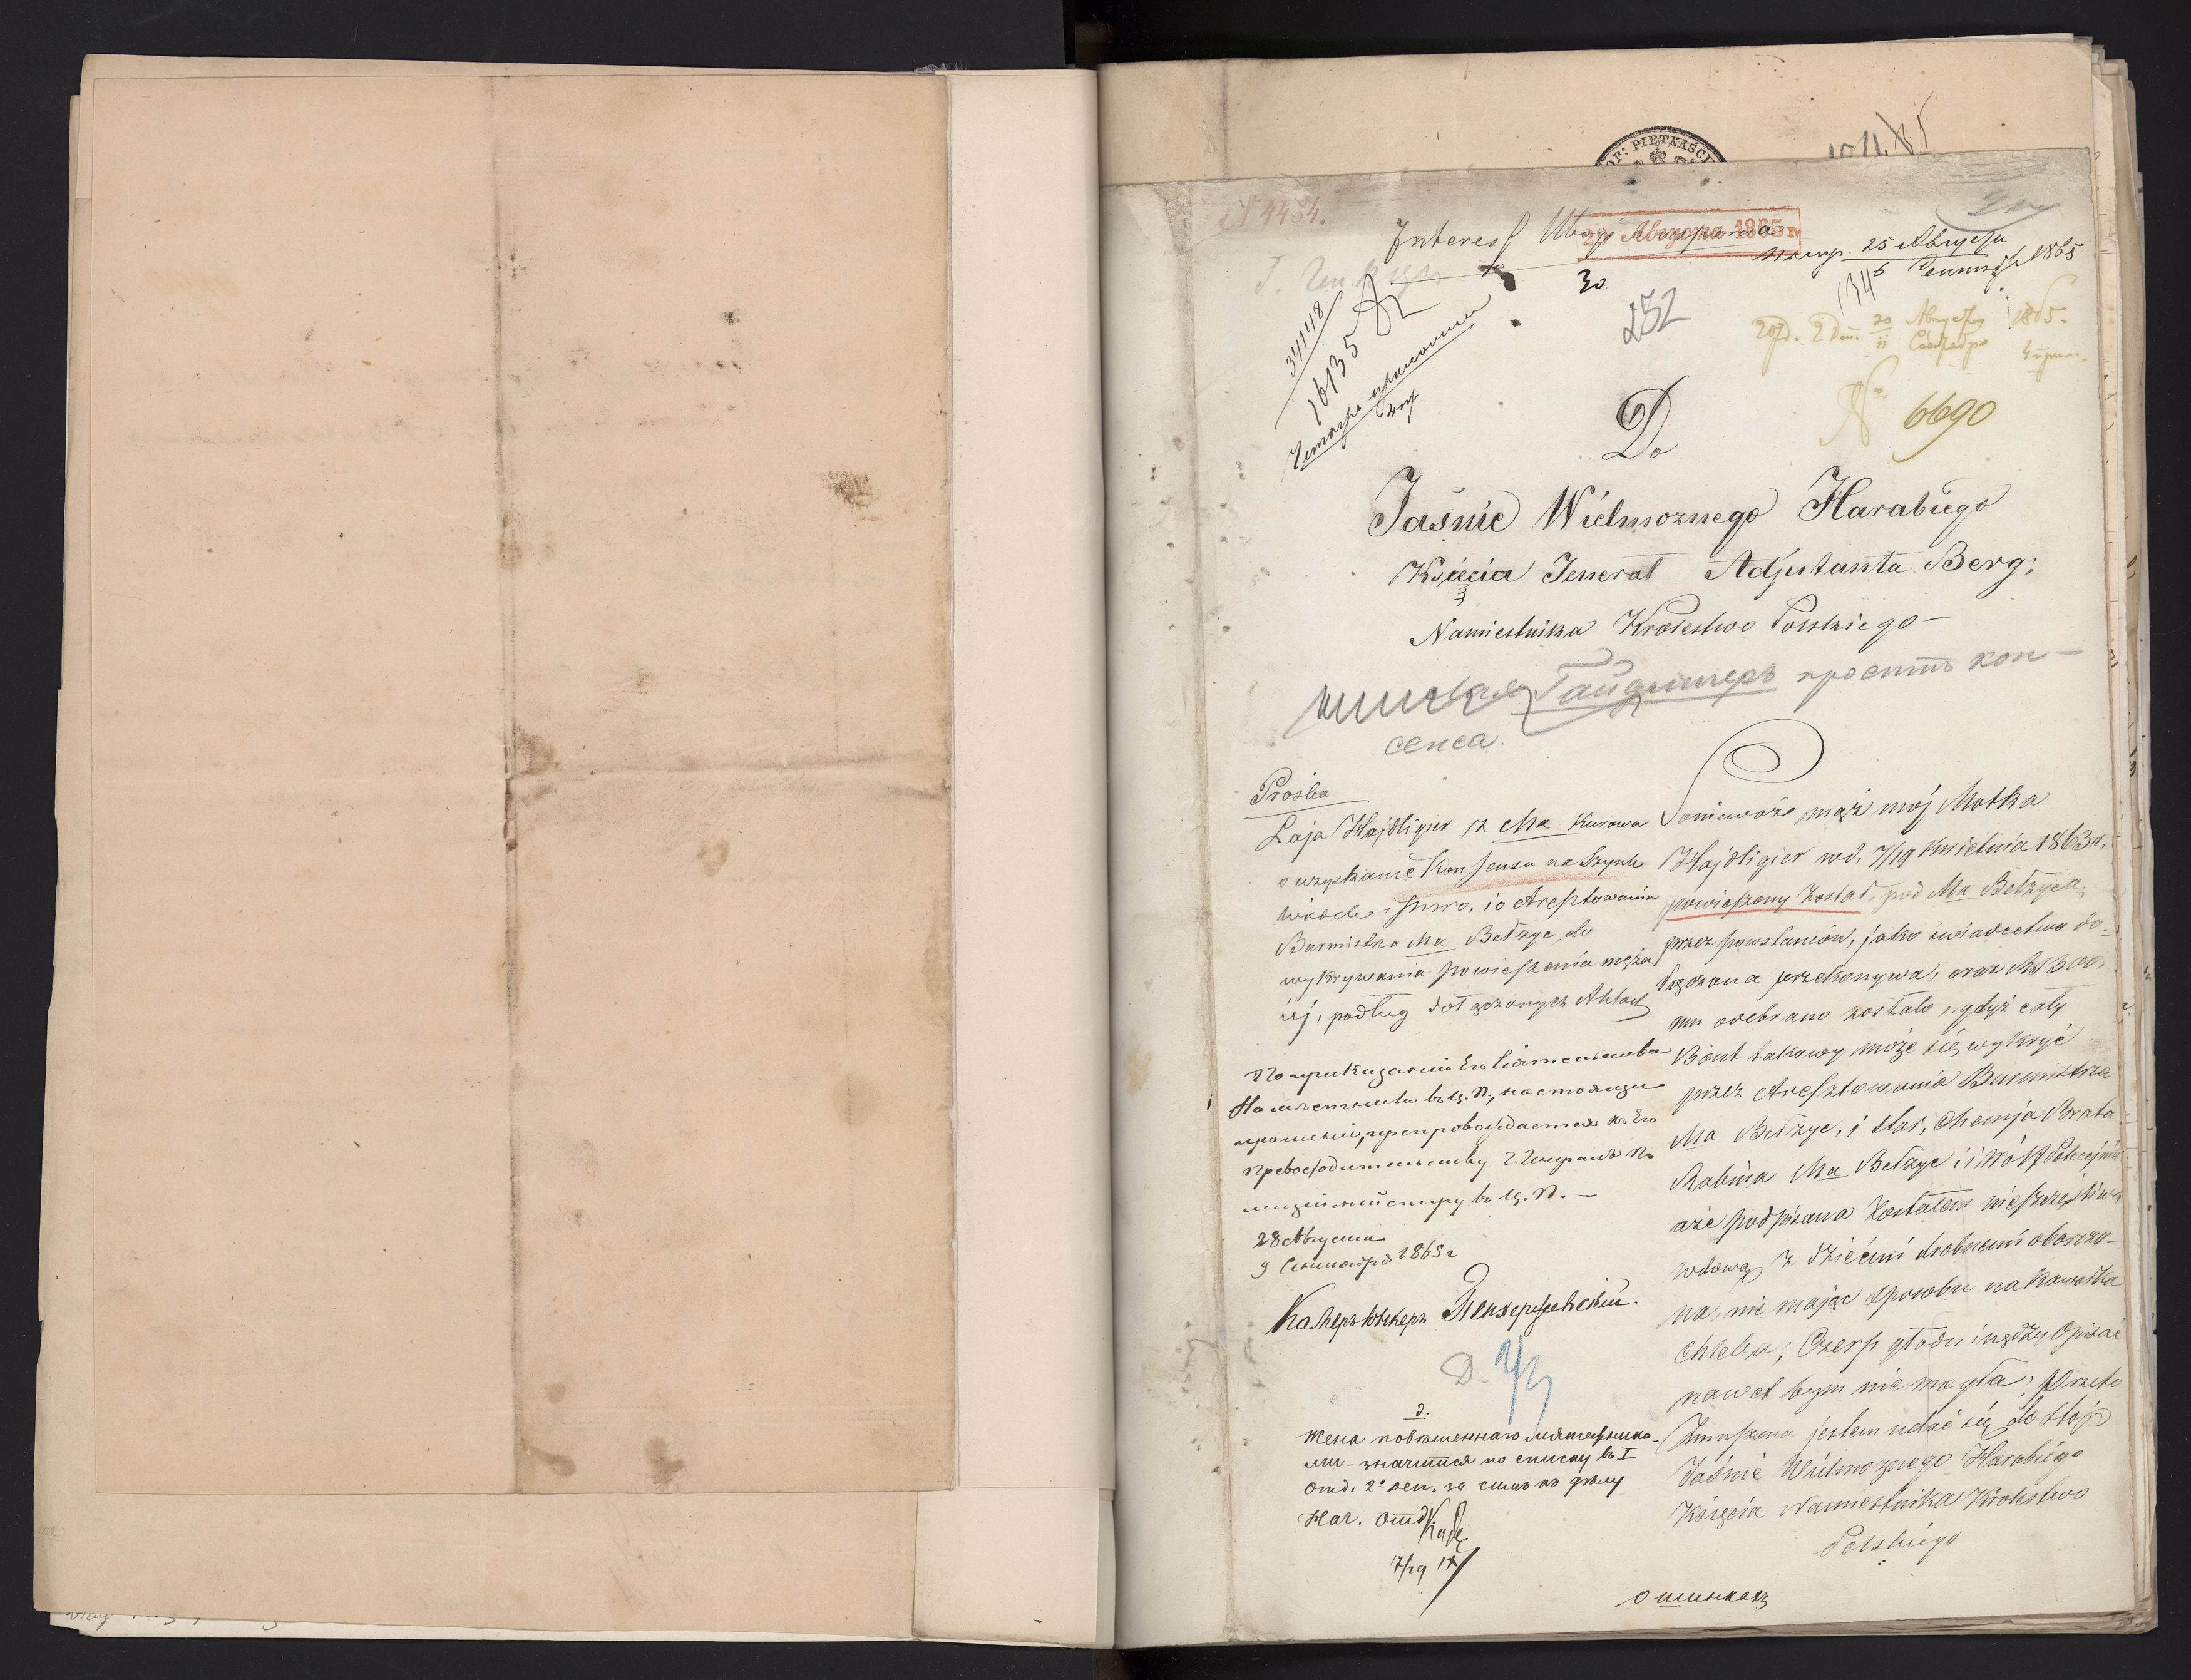 OP: PIĘTNAŚCI
№ 4434.
Interess Ubogi
28 Августа 1865
получ. 25 Августа
Сентяб. 1865
30
252
34148
16135
20 Августа 1865.
11
№ 6690
Do
Jaśnie Wielmoznego Harabiego
Księcia Jenerał Adjutanta Berg;
Namiestnika Krolestwo Polskiego
Гайдлигеръ проситъ кон-
сенса.
Prośba
Łaja Hajdligier z Ma Kurowa
o uzyskanie Konsensu na Szynk
wódek i piwo, i o Aresztowania
Burmistza Ma Bełzyc, do
wykrywania powieszenia męża
jéj, podług dołączonych Aktach
По приказанію Его Сіятельства
Намѣстника въ Ц. П., настоящее
прошеніе, препровождается къ Его
Превосходительству Г. Генералъ По-
лиціймейстеру въ Ц. П. —
28 Августа
9 Сентября 1865 г
Камеръ-Юнкеръ
Д.
Жена повѣшеннаго мятежника-
ми - значится по списку въ I
Отд. 2º
Нач. Отд.
17/29 IX
Poniewáże mąż mój Motka
Hajdligier w d. 7/19 Kwietnia 1863 r,
powieszony został, pod Ma Bełzyca,
przez powstańców, jako świadectwa do-
łączona przekonywa, oraz Rs 300,
mu odebrano zostało, gdyż cały
Bónt takowy może się wykryć
przez Aresztowania Burmistrza
Ma Bełzyc, i Star, Chemja Brata
Rabina Ma Bełzyc i
aże podpisana Zostałem nieszczęśliwa
wdową z dziećmi drobnemi obarczo-
na, nie mając sposobu na kawałka
chleba; Czerp głodu i nędzy Opisać
nawet bym nie mogła; Przeto
Zmuszona jestem udać się do stóp
Jaśnie Wielmoznego Harabiego
Księcia Namiestnika Krolestwo
Polskiego
о шинкахъ